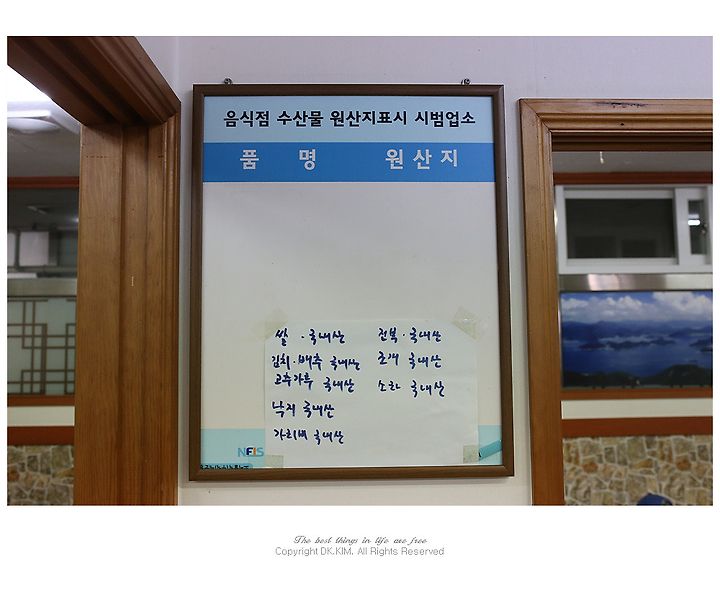 음식점 수산물 원산지표시 시범업소
품 명 원산지
쌀 · 국내산 전복 · 국내산
김치 · 배추 국내산 조개 국내산
고추가루 국내산 소라 국내산
낙지 국내산
가리비 국내산
NFIS
The best things in life are free
Copyright DK.KIM. All Rights Reserved